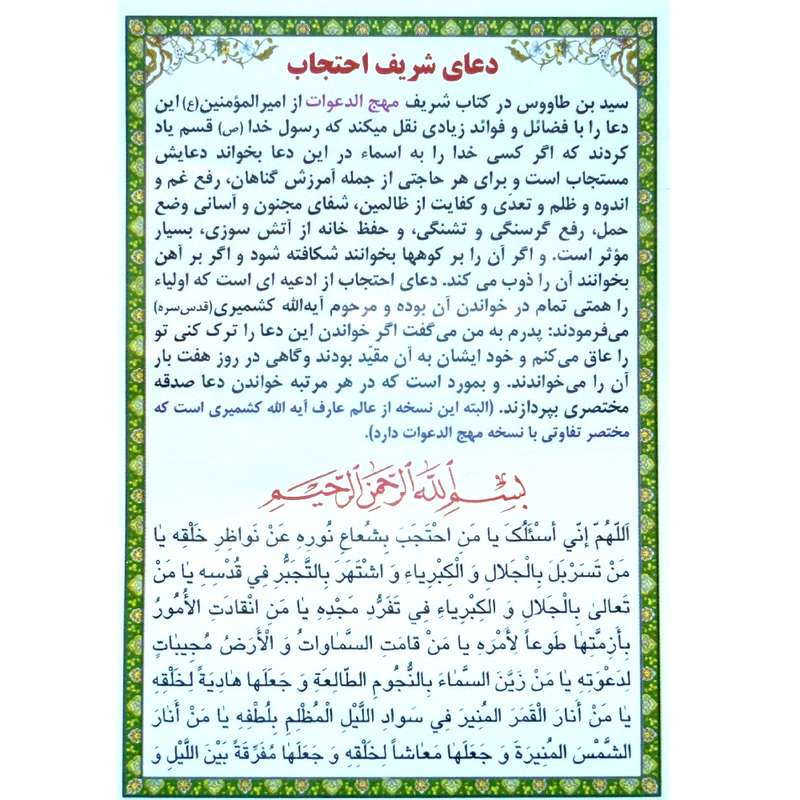 دعای شریف احتجاب
سید بن طاووس در کتاب شریف مهج الدعوات از امیرالمؤمنین(ع) این
دعا را با فضائل و فوائد زیادی نقل میکند که رسول خدا (ص) قسم یاد
کردند که اگر کسی خدا را به اسماء در این دعا بخواند دعایش
مستجاب است و برای هر حاجتی از جمله آمرزش گناهان، رفع غم و
اندوه و ظلم و تعدّی و کفایت از ظالمین، شفای مجنون و آسانی وضع
حمل، رفع گرسنگی و تشنگی، و حفظ خانه از آتش سوزی، بسیار
مؤثر است. و اگر آن را بر کوهها بخوانند شکافته شود و اگر بر آهن
بخوانند آن را ذوب می کند. دعای احتجاب از ادعیه ای است که اولیاء
را همتی تمام در خواندن آن بوده و مرحوم آیه‌الله کشمیری(قدس‌سره)
می‌فرمودند: پدرم به من می‌گفت اگر خواندن این دعا را ترک کنی تو
را عاق می‌کنم و خود ایشان به آن مقیّد بودند وگاهی در روز هفت بار
آن را می‌خواندند. و بمورد است که در هر مرتبه خواندن دعا صدقه
مختصری بپردازند. (البته این نسخه از عالم عارف آیه الله کشمیری است که
مختصر تفاوتی با نسخه مهج الدعوات دارد).
بِسْمِ اللهِ الرَّحْمنِ الرَّحیمِ
اَللّهُمّ إنّي أسْئَلُکَ یا مَن احْتَجَبَ بِشُعاعِ نُورِهِ عَنْ نَواظِرِ خَلْقِه یا
مَنْ تَسَرْبَلَ بِالْجَلالِ وَ الْکِبْرِیاءِ وَ اشْتَهَرَ بِالتَّجَبُّرِ فِي قُدْسِهِ یا مَنْ
تَعالیٰ بِالْجَلالِ وَ الکِبْرِیاءِ فِي تَفَرُّدِ مَجْدِهِ یا مَنِ انْقادَتِ الأُمُورُ
بِأزِمَّتِها طَوعاً لِأمْرِهِ یا مَنْ قامَتِ السَّماوات وَ الْأرَضُ مُجِیباتٍ
لِدَعْوَتِهِ یا مَنْ زَیَّنَ السَّماءَ بِالنُّجُومِ الطّالِعَةِ وَ جَعَلَها هادِیَةً لِخَلْقِهِ
یا مَنْ أنارَ الْقَمَرَ الْمُنِیرَ فِي سَوادِ اللَّیْلِ الْمُظْلِمِ بِلُطْفِهِ یا مَنْ أنارَ
الشَّمْسَ الْمُنِیرَةَ وَ جَعَلَها مَعاشاً لِخَلْقِهِ وَ جَعَلَها مُفَرِّقَةً بَیْنَ اللَّیْلِ وَ